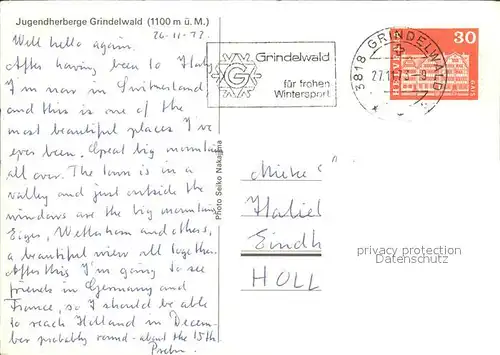 Jugendherberge Grindelwald (1100 m ü. M.)
26-11-72
Well hello again.
After having been to Italy
I'm now in Switserland
and this is one of the
most beautiful places I've
ever been. Great big mountains
all over. The town is in a
valley and just outside the
windows are the big mountains
Eiger, Wetterhorn and others,
a beautiful view all together.
After this I'm going to see
friends in Germany and
France, so I should be able
to reach Holland in Decem-
ber probably round - about the 15th
Grindelwald
G
für frohen
Wintersport
3818 GRINDELWALD
27.11.72 - 9
HELVETIA
30
Photo Seiko Nakajima
Mieke
Eindh
HOLL
privacy protection
Datenschutz